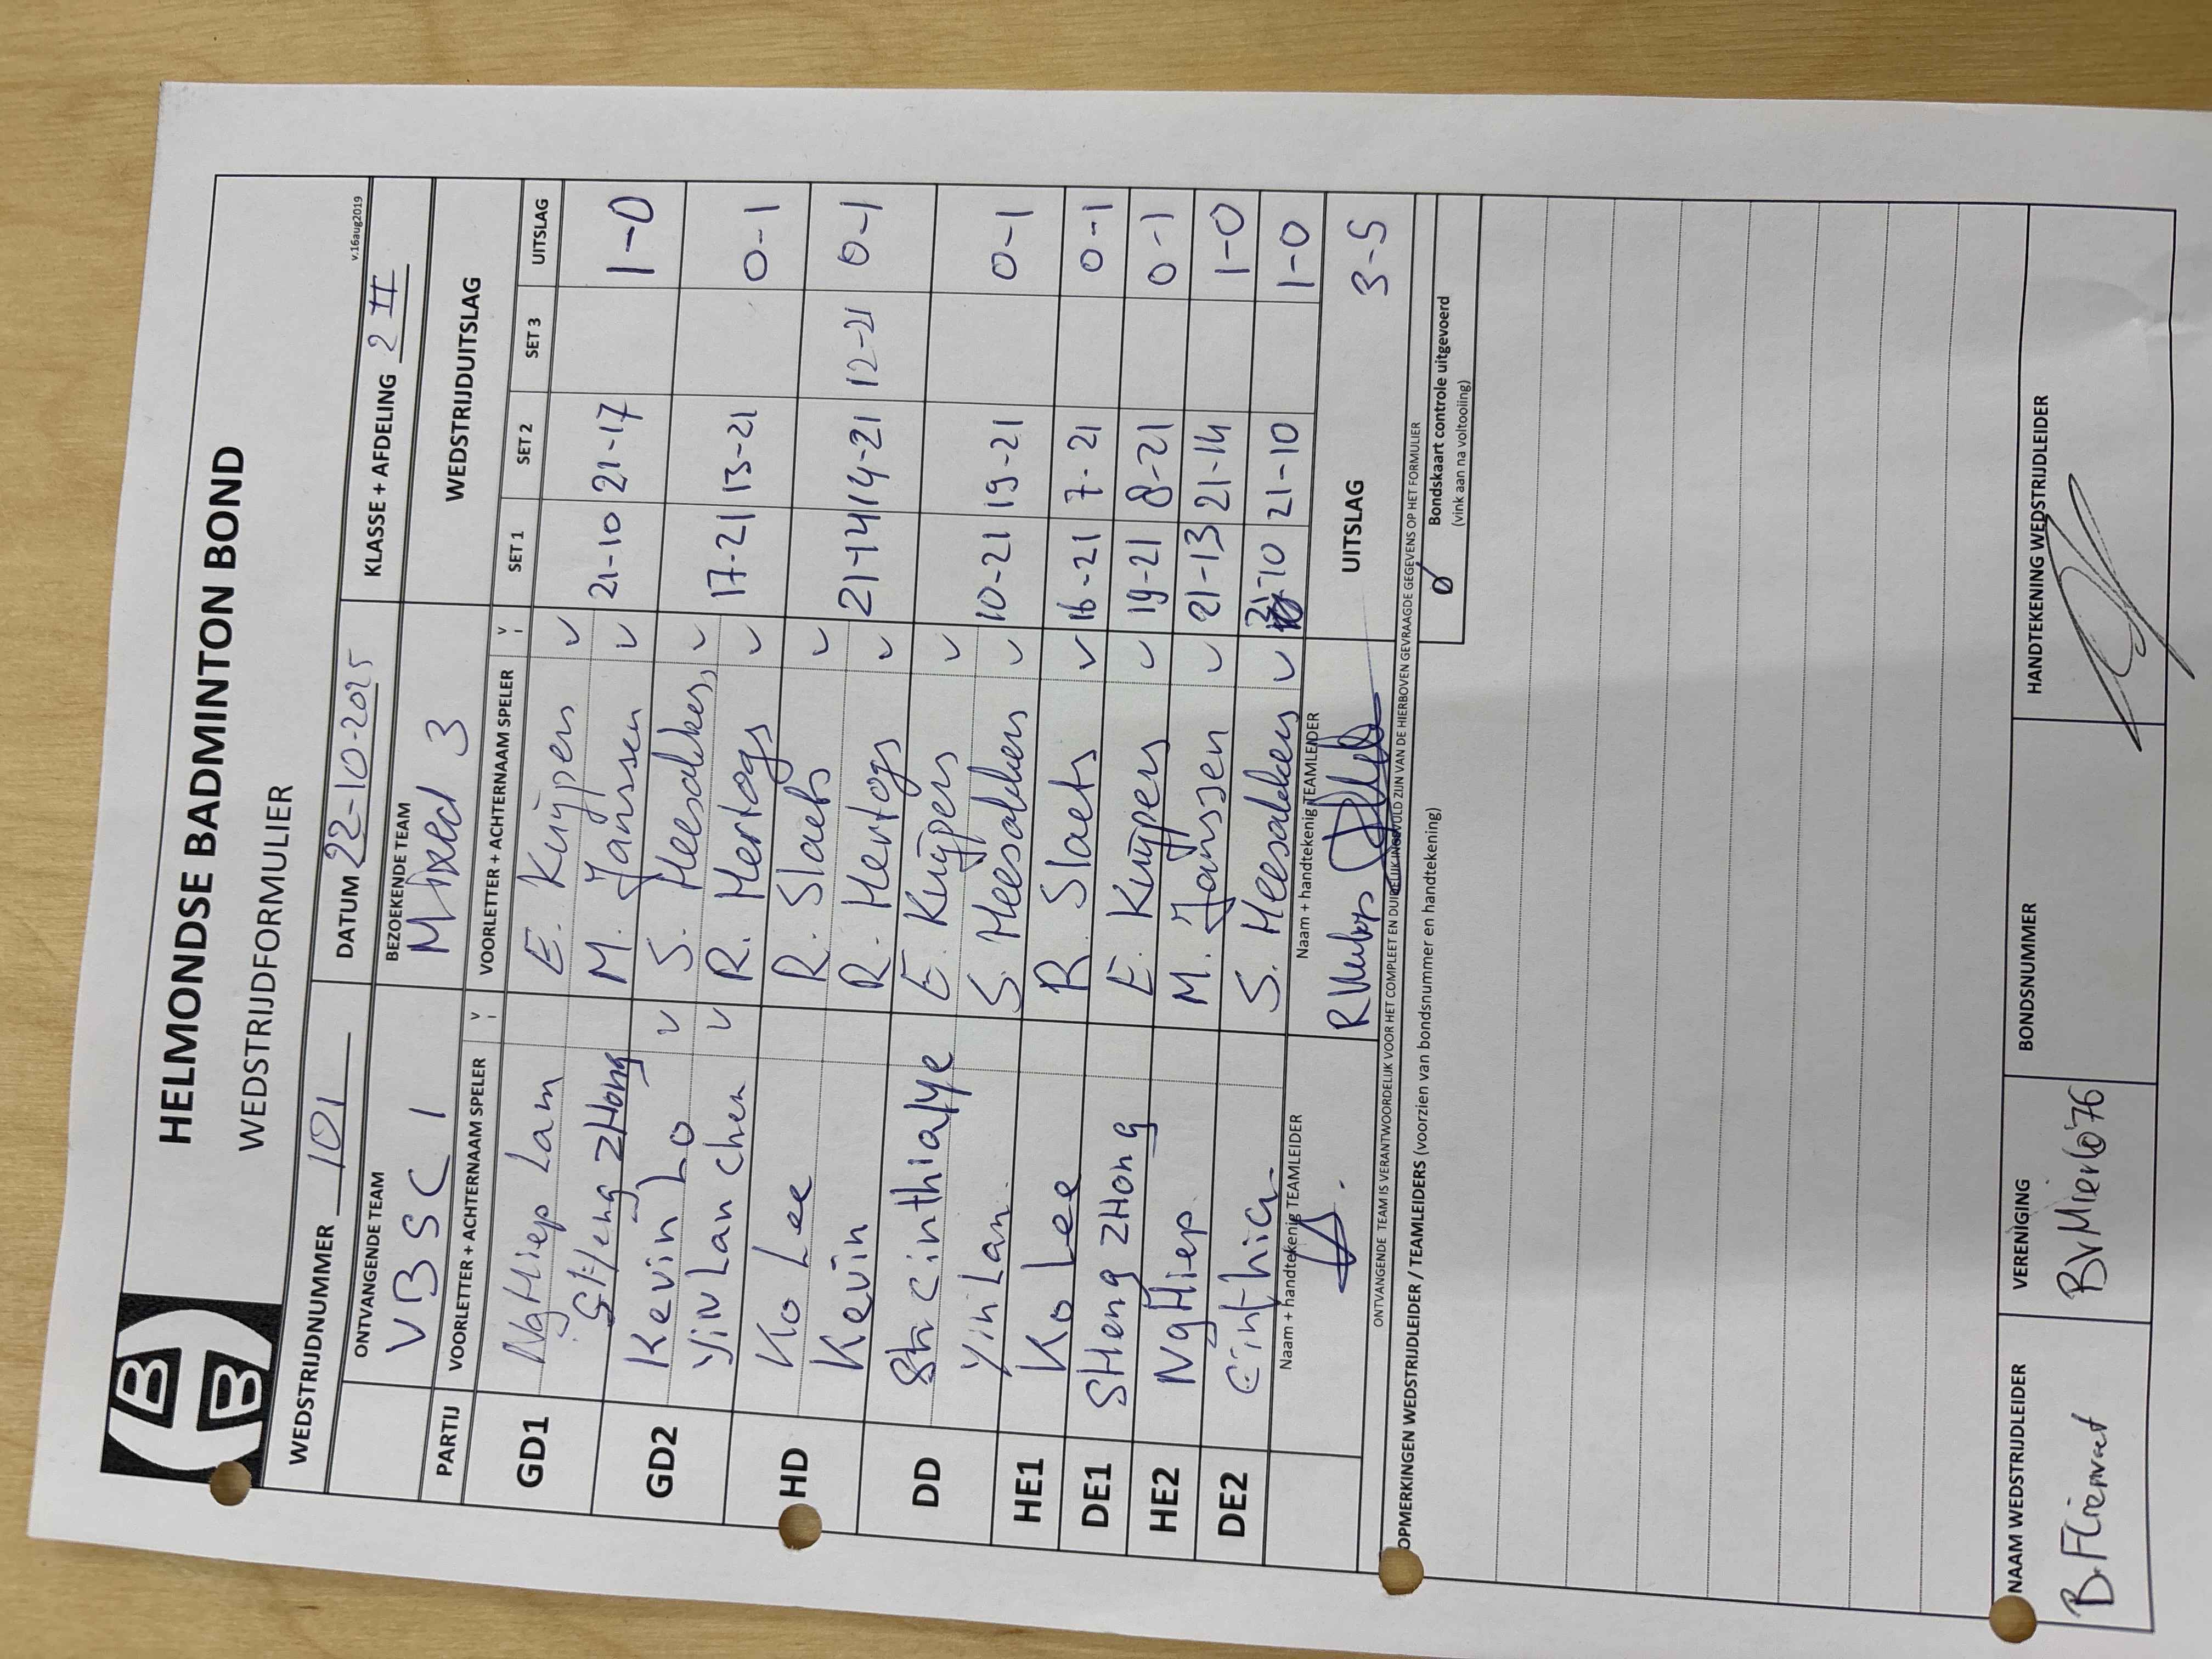 HELMONDSE BADMINTON BOND
WEDSTRIJDFORMULIER
v.16aug2019
WEDSTRIJDNUMMER 101 DATUM 22-10-2025 KLASSE + AFDELING 2 II
ONTVANGENDE TEAM BEZOEKENDE TEAM WEDSTRIJDUITSLAG
VBSC 1 Mixed 3
PARTIJ VOORLETTER + ACHTERNAAM SPELER V VOORLETTER + ACHTERNAAM SPELER V SET 1 SET 2 SET 3 UITSLAG
GD1 NgHiep Lam E. Kuijpers 21-10 21-17 1-0
SHeng ZHong M. Janssen
GD2 Kevin Lo S. Heesakkers 17-21 13-21 0-1
YinLan Chen R. Hertogs
HD Ko Lee R. Slaets 21-14 14-21 12-21 0-1
Kevin R. Hertogs
DD Cinthia Ye E. Kuijpers 10-21 19-21 0-1
YinLan S. Heesakkers
HE1 Ko Lee R. Slaets 16-21 7-21 0-1
DE1 SHeng ZHong E. Kuijpers 19-21 8-21 0-1
HE2 NgHiep M. Janssen 21-13 21-14 1-0
DE2 Cinthia S. Heesakkers 21-10 21-10 1-0
Naam + handtekenig TEAMLEIDER Naam + handtekenig TEAMLEIDER UITSLAG 3-5
ONTVANGENDE TEAM IS VERANTWOORDELIJK VOOR HET COMPLEET EN DUIDELIJK INGEVULD ZIJN VAN DE HIERBOVEN GEVRAAGDE GEGEVENS OP HET FORMULIER
OPMERKINGEN WEDSTRIJDLEIDER / TEAMLEIDERS (voorzien van bondsnummer en handtekening)
Bondskaart controle uitgevoerd
(vink aan na voltooling)
NAAM WEDSTRIJDLEIDER VERENIGING BONDSNUMMER HANDTEKENING WEDSTRIJDLEIDER
BVMierlo'76